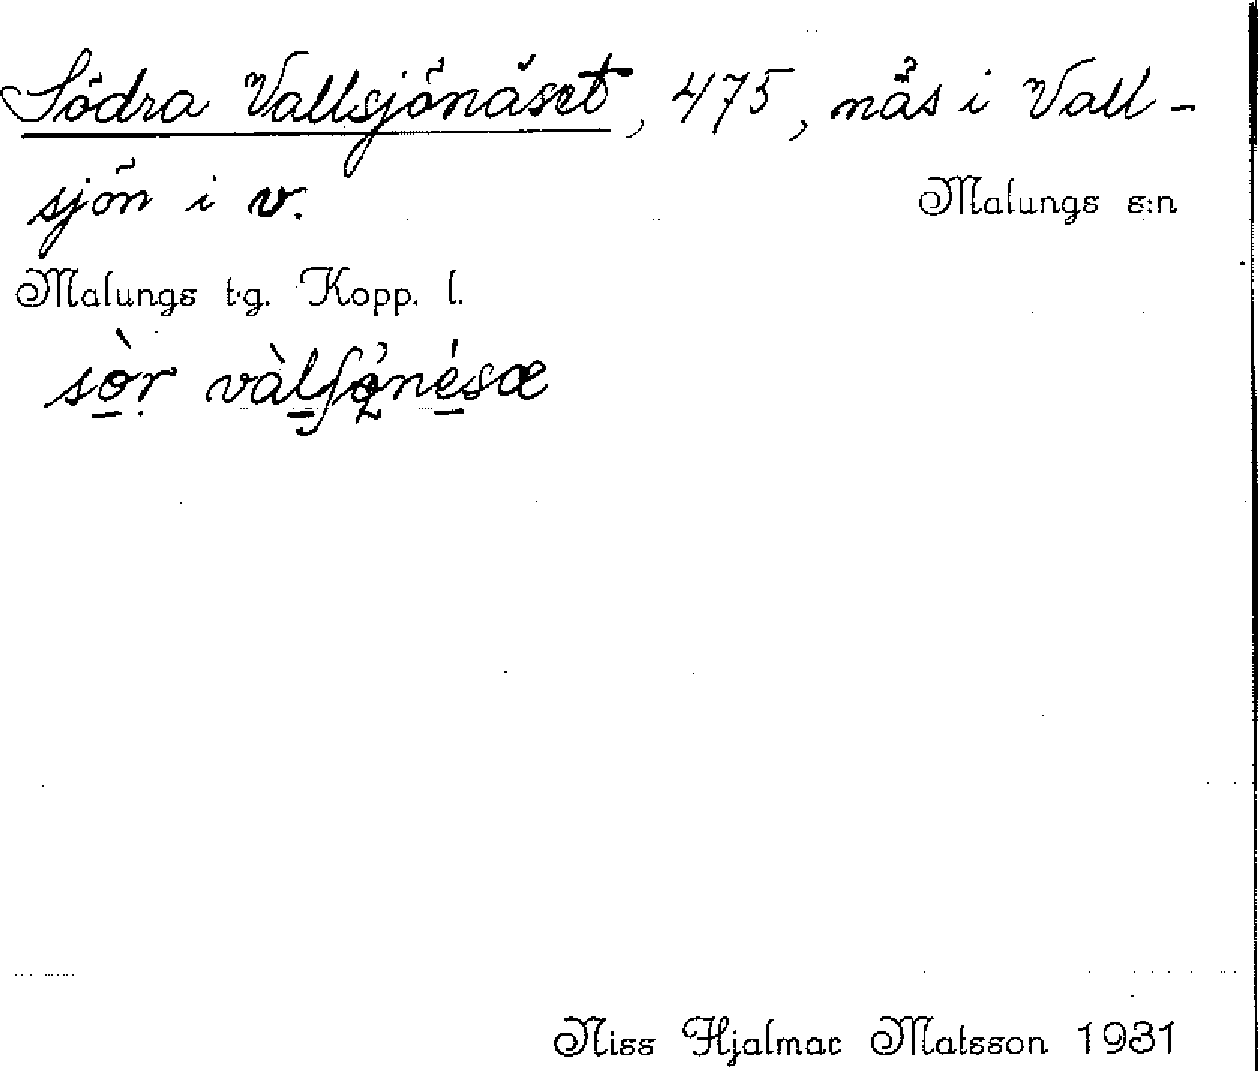 Södra Vallsjönäset, 475, näs i Vall-
sjön i v.
Malungs s:n
Malungs t.g. Kopp. l.
sòr
Niss Hjalmar Matsson 1931